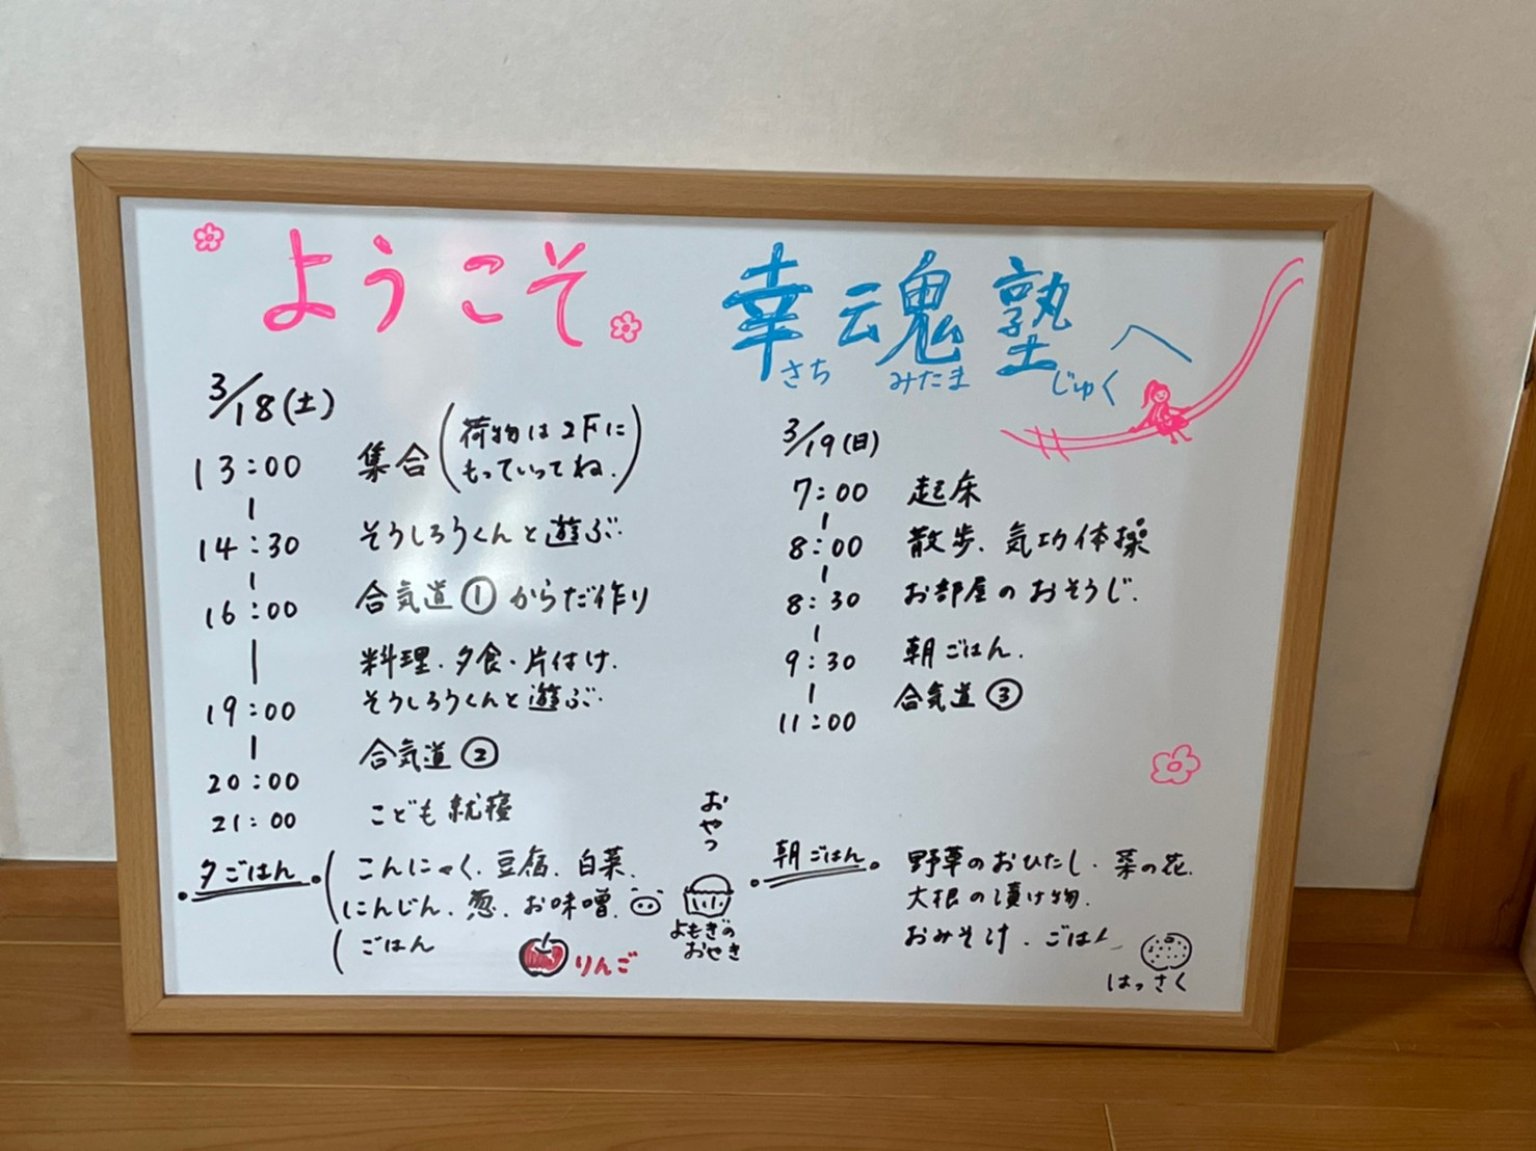 ようこそ。
幸魂塾へ
さち みたま じゅく
3/18(土)
13:00 集合(荷物は2Fに
もっていってね.)
14:30 そうしろうくんと遊ぶ.
16:00 合気道① からだ作り
料理.夕食.片付け.
そうしろうくんと遊ぶ.
19:00
合気道②
20:00
21:00 こども就寝
夕ごはん
こんにゃく.豆腐.白菜.
にんじん.葱.お味噌.
ごはん
りんご
おやつ
よもぎの
おやき
3/19(日)
7:00 起床
8:00 散歩.気功体操
8:30 お部屋のおそうじ.
9:30 朝ごはん.
合気道③
11:00
朝ごはん。
野草のおひたし.菜の花.
大根の漬け物.
おみそ汁.ごはん
はっさく